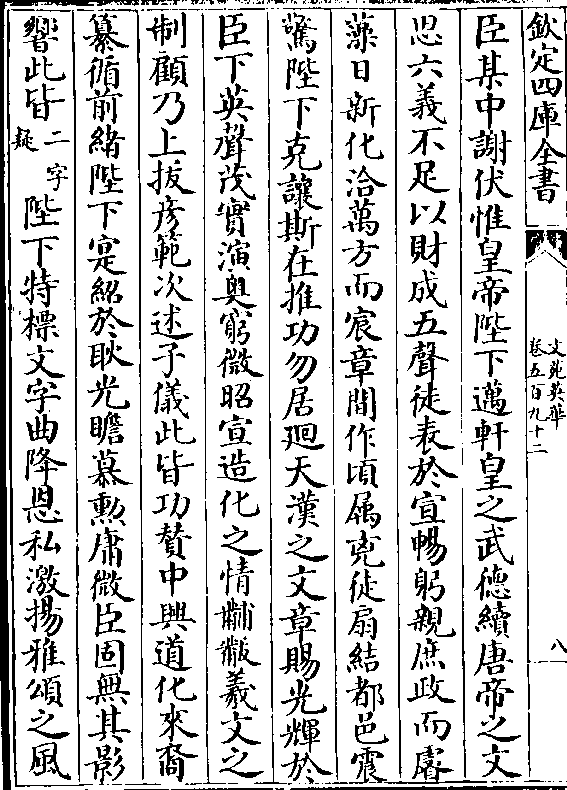 欽定四庫全書
文苑英華
卷五百九十二
八
臣某中謝伏惟皇帝陛下邁軒皇之武德續唐帝之文
思六義不足以財成五聲徒表於宣暢躬親庶政而睿
藻日新化洽萬方而宸章間作頃屬兇徒扇結都邑震
驚陛下克讓斯在推功勿居廻天漢之文章賜光輝於
臣下英聲茂實演奥窮微昭宣造化之情黼黻羲文之
制顧乃上拔彦範次述子儀此皆功贊中興道化來裔
纂循前緒陛下寔紹於耿光瞻慕勲庸微臣固無其影
響此皆二字疑陛下特標文字曲降恩私激揚雅頌之風